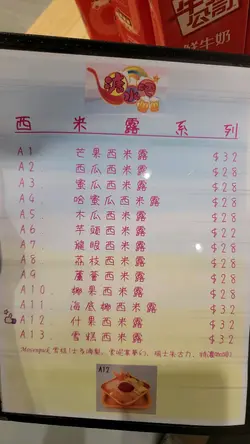 牛奶公司
鮮牛奶
西米露系列
A1. 芒果西米露 $32
A2 西瓜西米露 $28
A3. 蜜瓜西米露 $28
A4. 哈蜜瓜西米露 $28
A5. 木瓜西米露 $28
A6 芋頭西米露 $32
A7. 龍眼西米露 $28
A8. 荔枝西米露 $28
A9 蘆薈西米露 $28
A10. 椰果西米露 $28
A11. 海底椰西米露 $32
A12. 什果西米露 $32
A13. 雪糕西米露 $32
A12